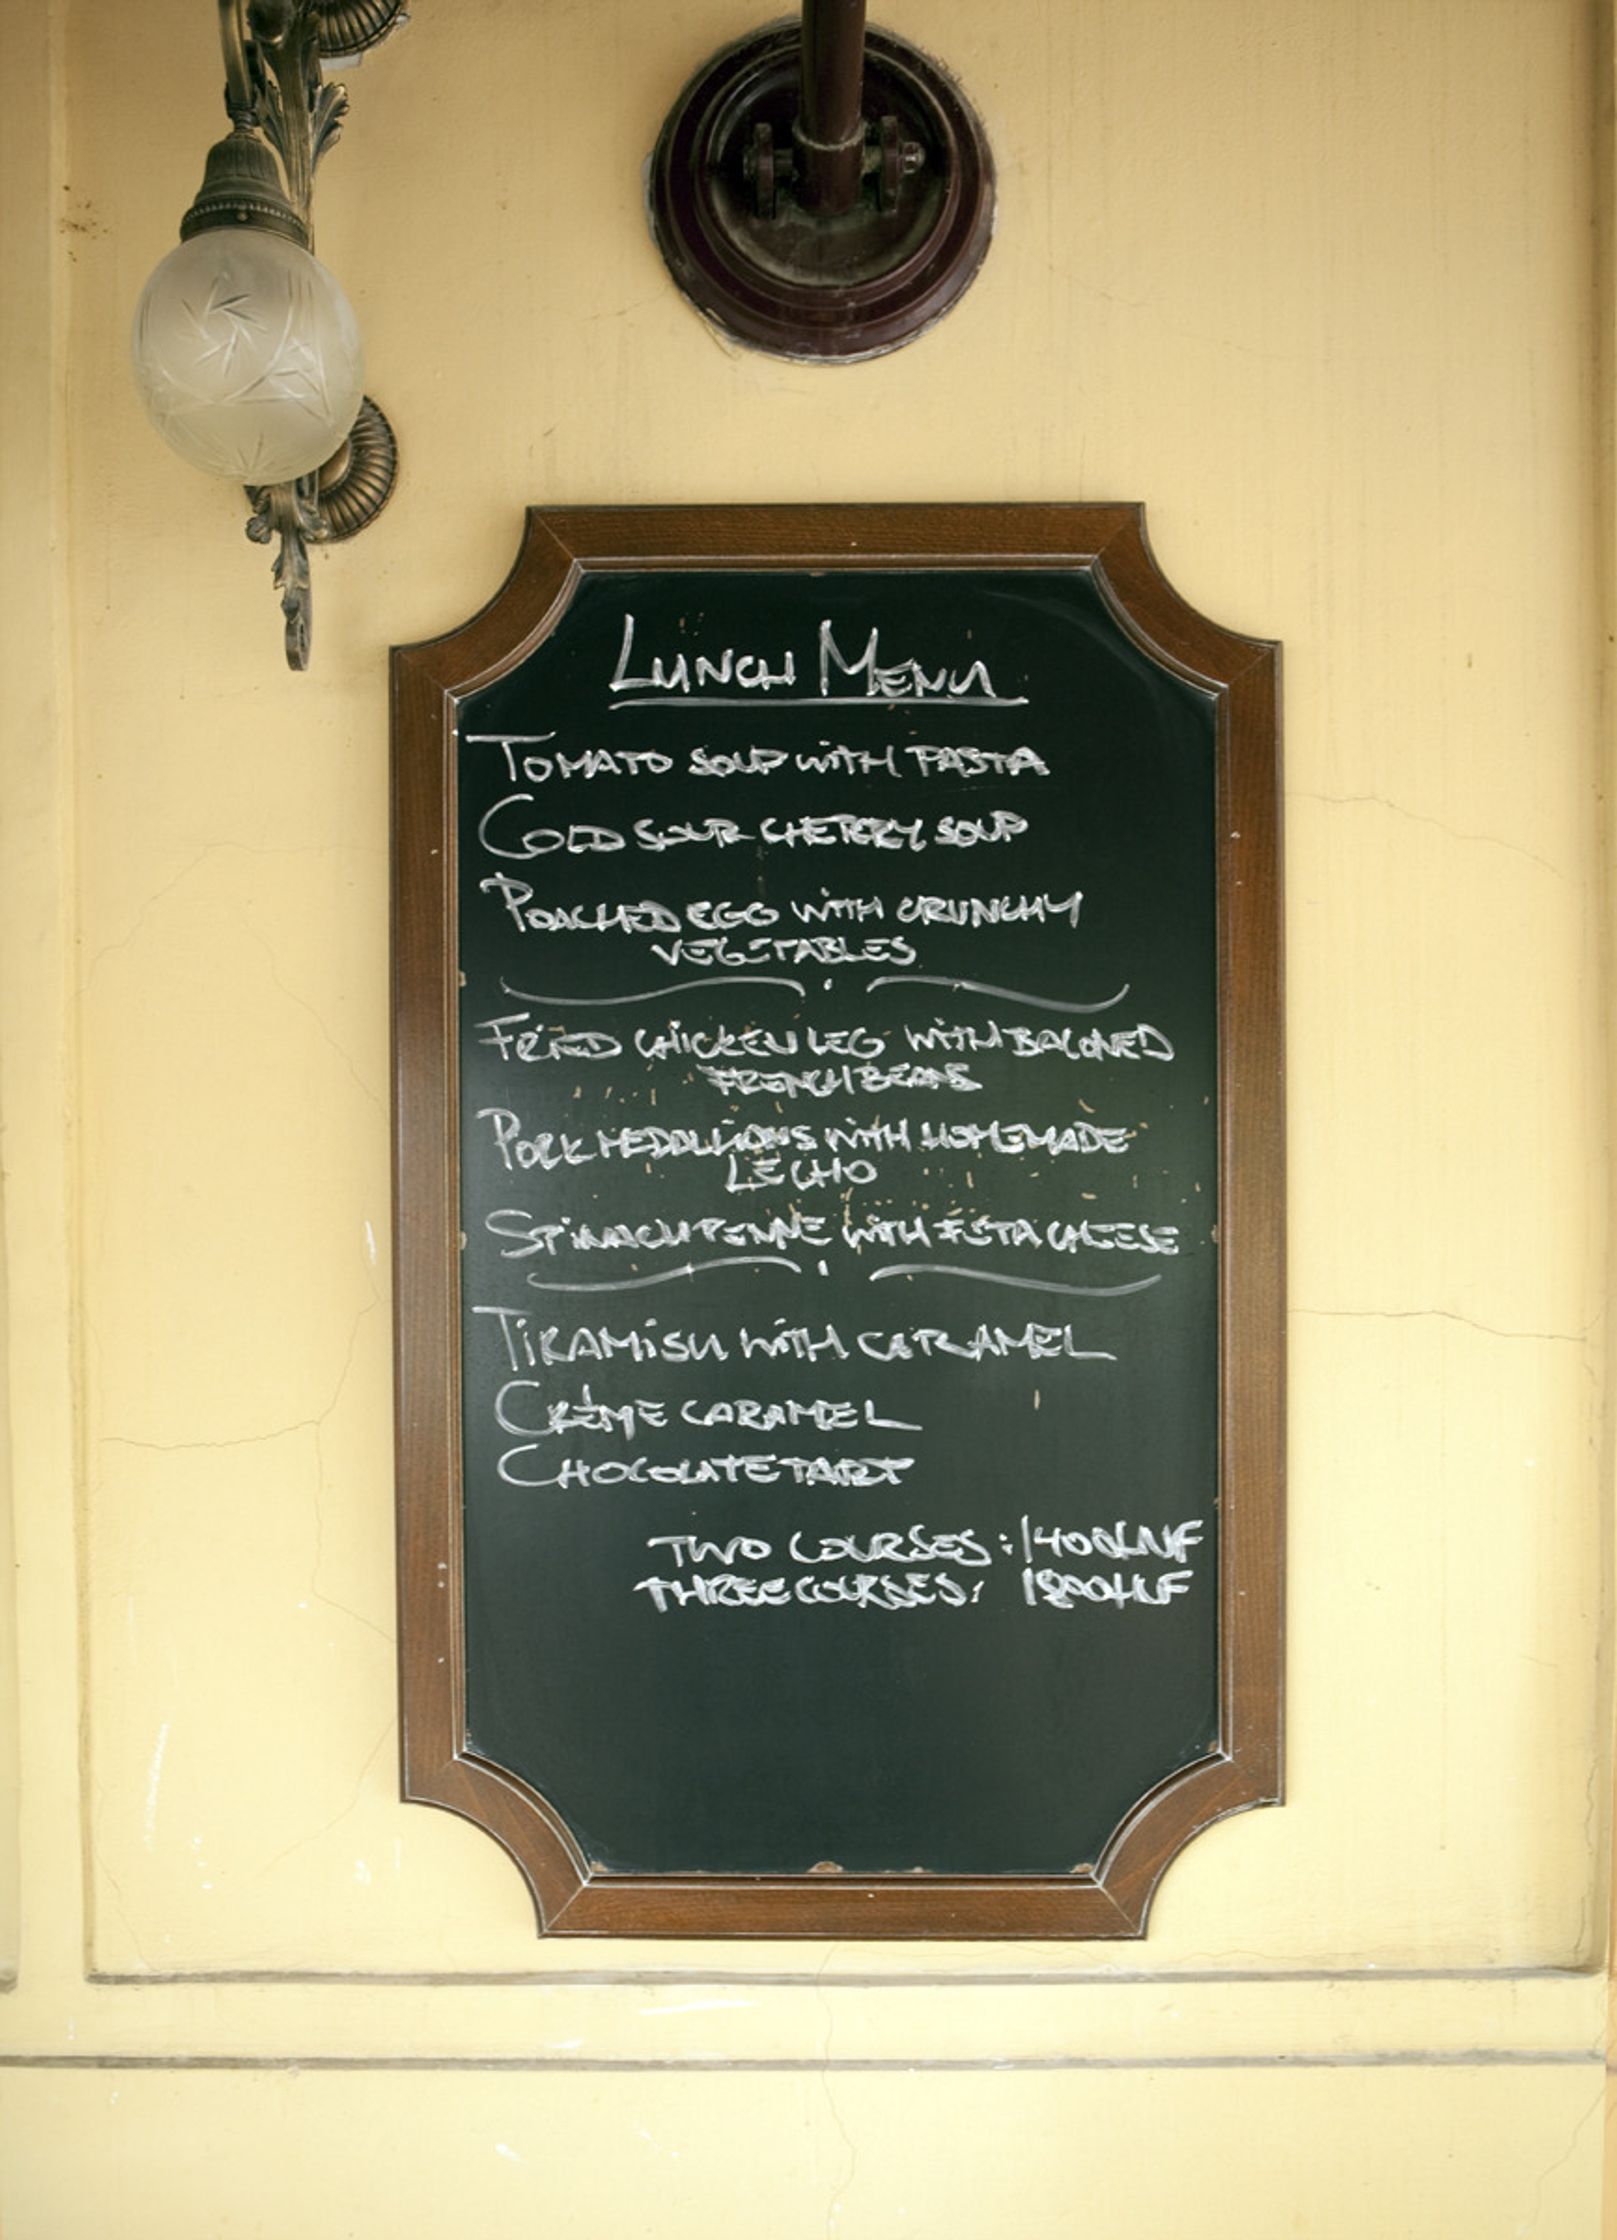 LUNCH MENU
TOMATO SOUP WITH PASTA
COLD SOUR CHERRY SOUP
POACHED EGG WITH CRUNCHY
VEGETABLES
FRIED CHICKEN LEG WITH BACONED
FRENCH BEANS
PORK MEDALLIONS WITH HOMEMADE
LECHO
SPINACH PENNE WITH FETA CHEESE
TIRAMISU WITH CARAMEL
CRÈME CARAMEL
CHOCOLATE TART
TWO COURSES: 1400HUF
THREE COURSES: 1800HUF